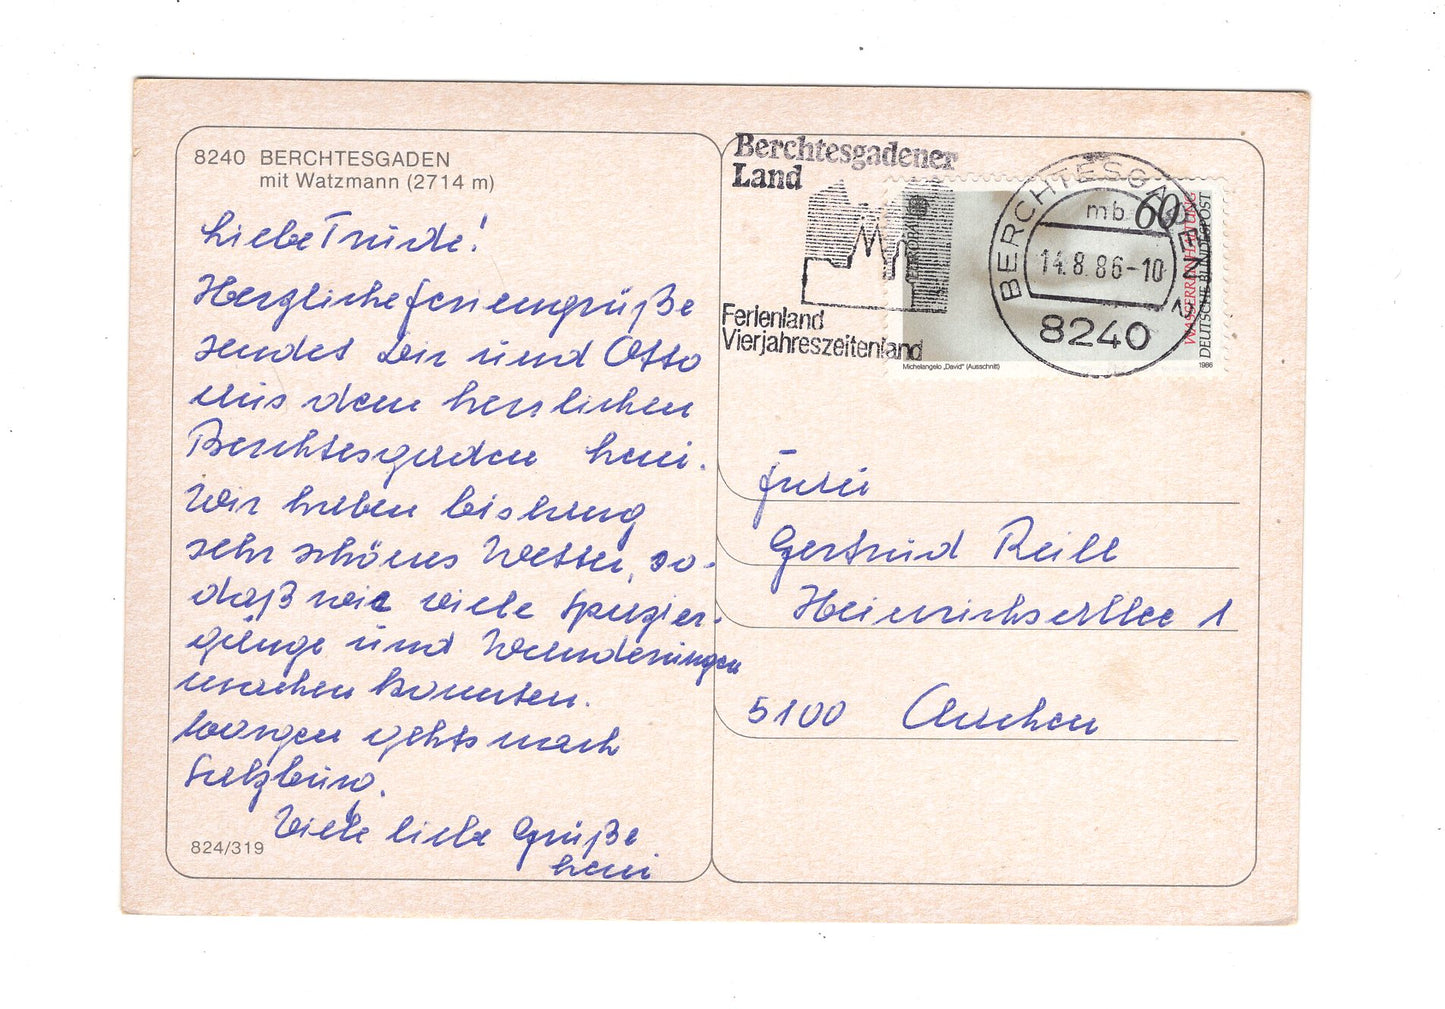 8240 BERCHTESGADEN
mit Watzmann (2714 m)
Liebe Trude!
Herzliche Feriengrüße
sendet Dir und Otto
aus dem herrlichen
Berchtesgaden Leni.
Wir haben bislang
sehr schönes Wetter, so-
daß wir viele Spazier-
gänge und Wanderungen
machen konnten.
Morgen gehts nach
Salzburg.
Viele liebe Grüße
Leni
824/319
Berchtesgadener
Land
Ferienland
Vierjahreszeitenland
BERCHTESGADEN 2
mb
14.8.86-10
8240
60
EUROPA
WASSERREINHALTUNG
DEUTSCHE BUNDESPOST
Michelangelo „David" (Ausschnitt)
1986
Frau
Gertrud Reill
Heinrichsallee 1
5100 Aachen